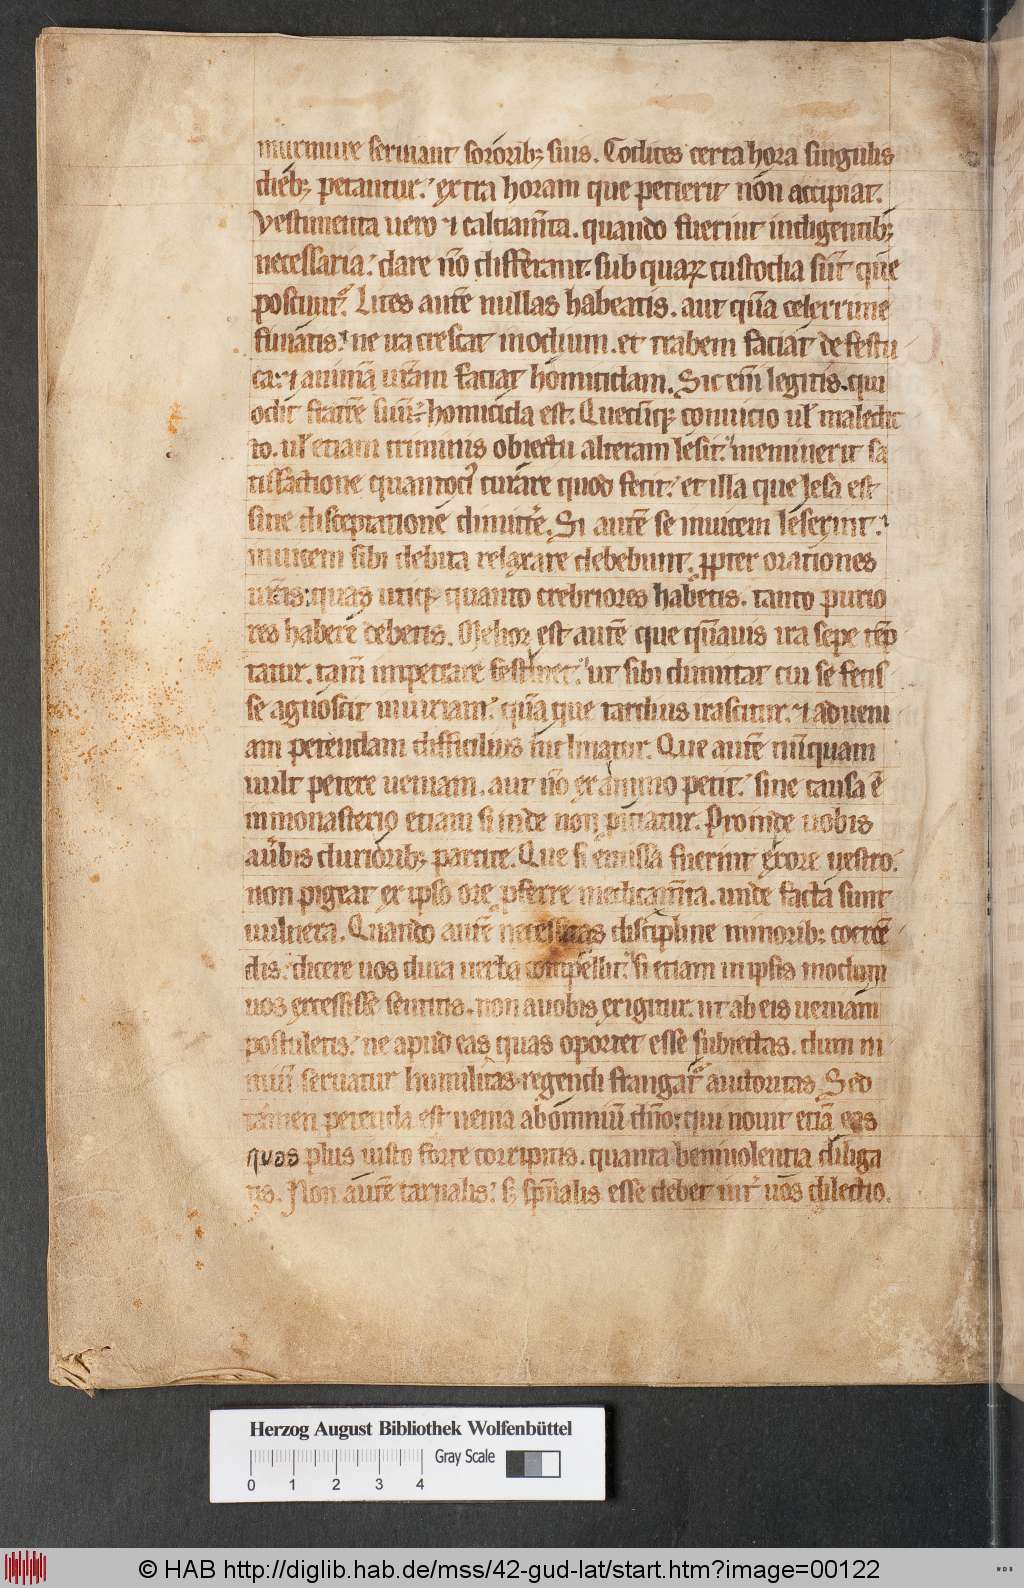 murmure seruiant sororib; suis. Codices certa hora singulis
dieb; petantur. extra horam que petierit non accipiat.
Vestimenta uero ⁊ calciam̄ta. quando fuerint indigentib;
necessaria. dare nō differant. sub quaꝝ custodia sūt que
poscunt᷑. Lites autē nullas habeatis. aut qͣm celerrime
finiatis. ne ira crescat in odium. et trabem faciat de festu
ca. ⁊ animā ur̄am faciat homicidam. Sic em̄ legitis. qui
odit fratrē suū. homicida est. Quecūqꝫ conuicio ul̓ maledic
to. ul̓ etiam criminis obiectu alteram lesit. meminerit sa
tisfactione quantoci᷒ curare quod fecit. et illa que lesa est
sine disceptatione dimitt̓e. Si autē se inuicem leserint.
inuicem sibi debita relaxare debebunt. ꝓpter orationes
ur̄as. quas utiqꝫ quanto crebriores habetis. tanto purio
res habere debetis. Melior est autē que qͣmuis ira sepe tēp
tatur. tam̄ impetrare festinet. ut sibi dimittat cui se fecis
se agnoscit iniuriam. qͣm que tardius irascitur. ⁊ ad ueni
am petendam difficilius inclinatur. Que autē nūquam
uult petere ueniam. aut nō ex animo petit. sine causa ē
in monasterio etiam si inde non piciatur. Proinde uobis
a uerbis durιorib; parcite. Que si emissa fuerint ex ore uestro.
non pigeat ex ipso ore ꝓferre medicam̄ta. unde facta sunt
uulnera. Quando autē necessitas discipline minorib; coercē
dis. dicere uos dura uerba compellit. si etiam in ipsis modum
uos excessisse sentitis. non a uobis exigitur. ut ab eis ueniam
postuletis. ne apud eas quas oportet esse subiectas. dum ni
miū seruatur humilitas. regendi frangat᷑ auctoritas. Sed
tamen petenda est uenia ab omniū dn̄o. qui nouit etiā eas
quas plus iusto forte corripitis. quanta beniuolentia diliga
tis. Non autē carnalis. s; sp̄ualis esse debet int̓ uos dilectio.
Herzog August Bibliothek Wolfenbüttel
Gray Scale
0 1 2 3 4
© HAB http://diglib.hab.de/mss/42-gud-lat/start.htm?image=00122